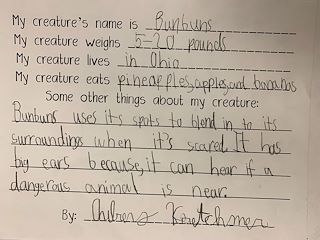 My creature's name is Bunbuns
My creature weighs 5-20 pounds
My creature lives in Ohio
My creature eats pineapples, apples, and bananas
Some other things about my creature:
Bunbuns uses its spots to blend in to its
surroundings when it's scared. It has
big ears because, it can hear if a
dangerous animal is near.
By: